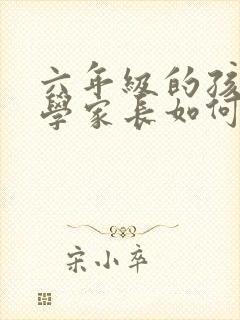 六年级的孩
學家長如何
宋小卒